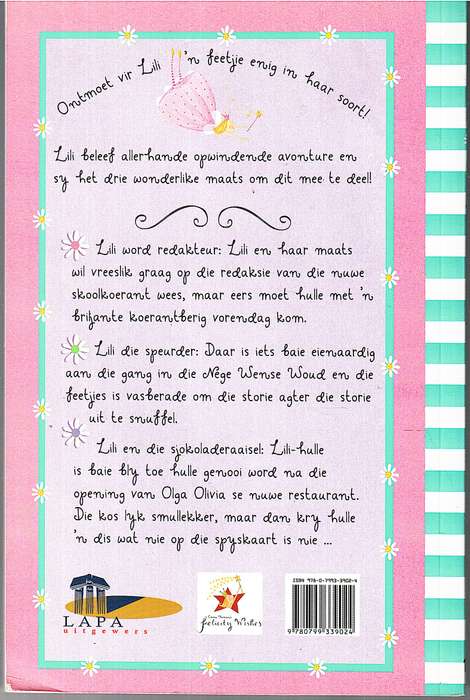 Ontmoet vir Lili 'n feetjie enig in haar soort!
Lili beleef allerhande opwindende avonture en
sy het drie wonderlike maats om dit mee te deel!
Lili word redakteur: Lili en haar maats
wil vreeslik graag op die redaksie van die nuwe
skoolkoerant wees, maar eers moet hulle met 'n
briljante koerantberig vorendag kom.
Lili die speurder: Daar is iets baie eienaardig
aan die gang in die Nege Wense Woud en die
feetjies is vasberade om die storie agter die storie
uit te snuffel.
Lili en die sjokoladeraaisel: Lili-hulle
is baie bly toe hulle genooi word na die
opening van Olga Olivia se nuwe restaurant.
Die kos lyk smullekker, maar dan kry hulle
'n dis wat nie op die spyskaart is nie ...
LAPA
uitgewers
Felicity Wishes
ISBN 978-0-7993-3902-4
9 780799 339024